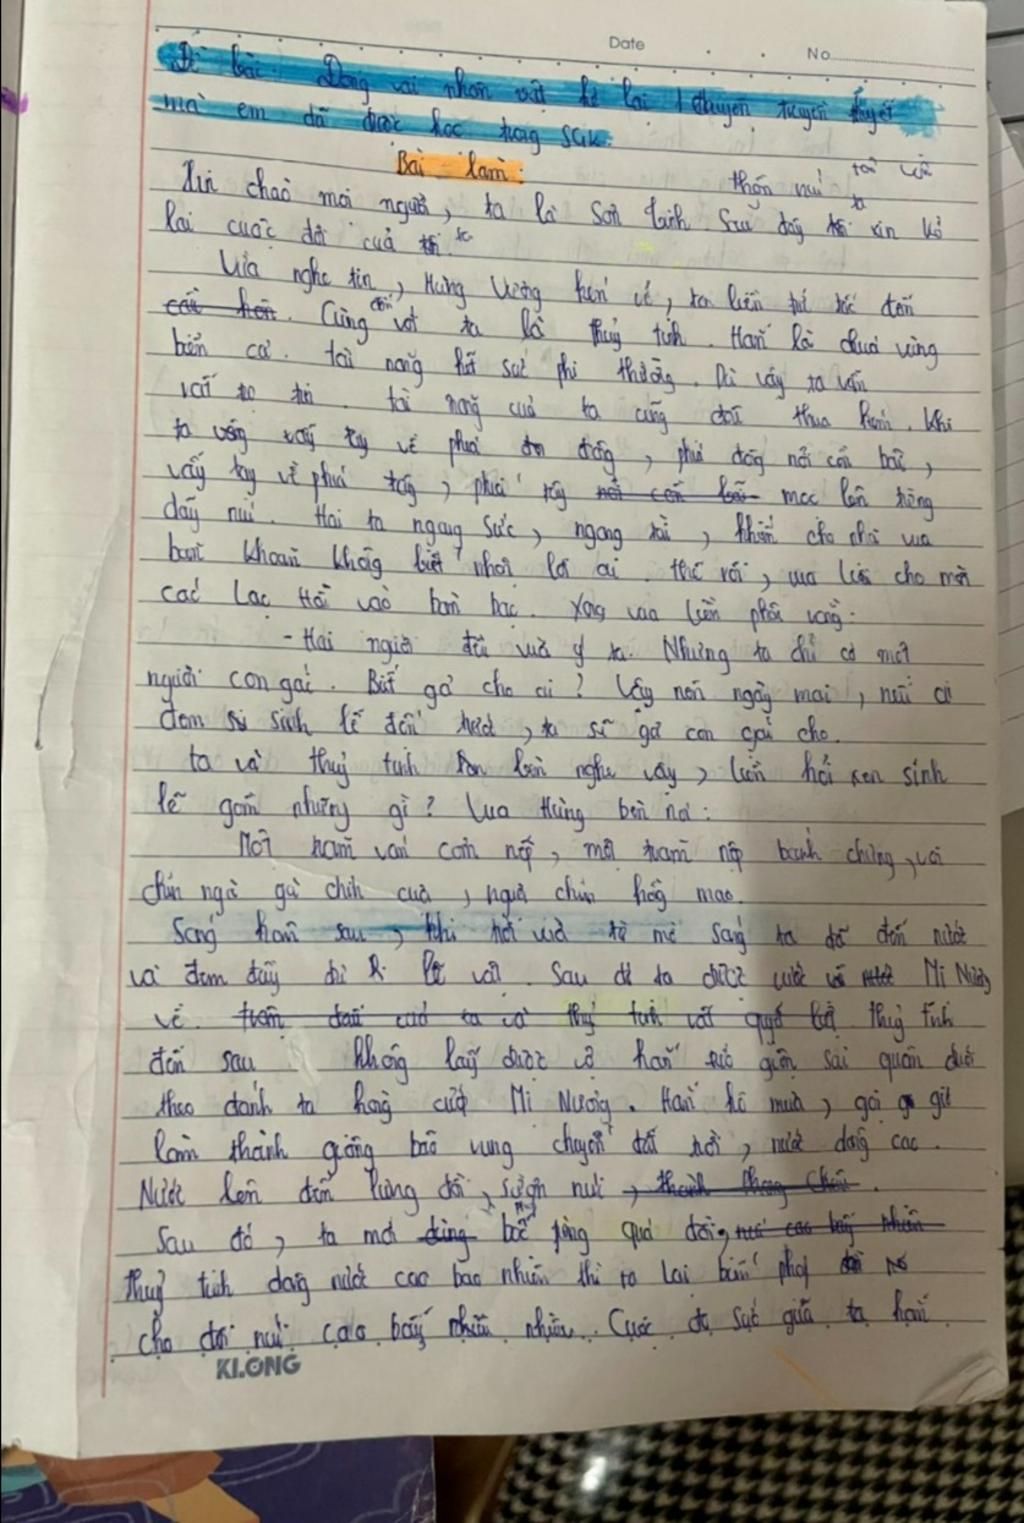 Date No
Đề bài: Đóng vai nhân vật kể lại 1 chuyện truyền thuyết
mà em đã được học trong SGK.
Bài làm:
thần núi
Xin chào mọi người, ta là Sơn Tinh. Sau đây ta xin kể
lại cuộc đời của ta.
Vừa nghe tin, Hùng Vương kén rể, ta liền tức tốc đến
cầu hôn. Cùng đến với ta là Thuỷ Tinh. Hắn là chúa vùng
biển cả. tài năng hết sức phi thường. Dù vậy ta vẫn
rất tự tin. tài năng của ta cũng đâu thua kém. Khi
ta vẫy tay về phía đông, phía đông nổi cồn bãi,
vẫy tay về phía tây, phía tây nổi cồn bãi mọc lên từng
dãy núi. Hai ta ngang sức, ngang tài, khiến cho nhà vua
băn khoăn không biết nhận lời ai. thế rồi, vua liền cho mời
các Lạc Hầu vào bàn bạc. Xong vua liền phán rằng:
- Hai người đều vừa ý ta. Nhưng ta chỉ có một
người con gái. Biết gả cho ai? Vậy nên ngày mai, nếu ai
đem sính lễ đến trước, ta sẽ gả con gái cho.
ta và thuỷ tinh bèn nghe vậy, liền hỏi xem sính
lễ gồm những gì? Vua Hùng bèn nói:
Một trăm ván cơm nếp, một trăm nệp bánh chưng, voi
chín ngà gà chín cựa, ngựa chín hồng mao.
Sáng hôm sau, khi trời vừa tờ mờ sáng ta đã đến trước
và đem đầy đủ lễ vật. Sau đó ta được rước Mị Nương
về. thuỷ tinh
đến sau không lấy được vợ hắn tức giận sai quân đuổi
theo đánh ta hòng cướp Mị Nương. Hắn hô mưa, gọi gió
làm thành giông bão rung chuyển đất trời, nước dâng cao.
Nước lên đến lưng đồi, sườn núi, thành Phong Châu.
Sau đó, ta mới dùng bốc từng quả đồi,
thuỷ tinh dâng nước cao bao nhiêu thì ta lại biến phép
cho đồi núi cao bấy nhiêu nhiêu. Cuộc đọ sức giữa ta hắn
KLONG